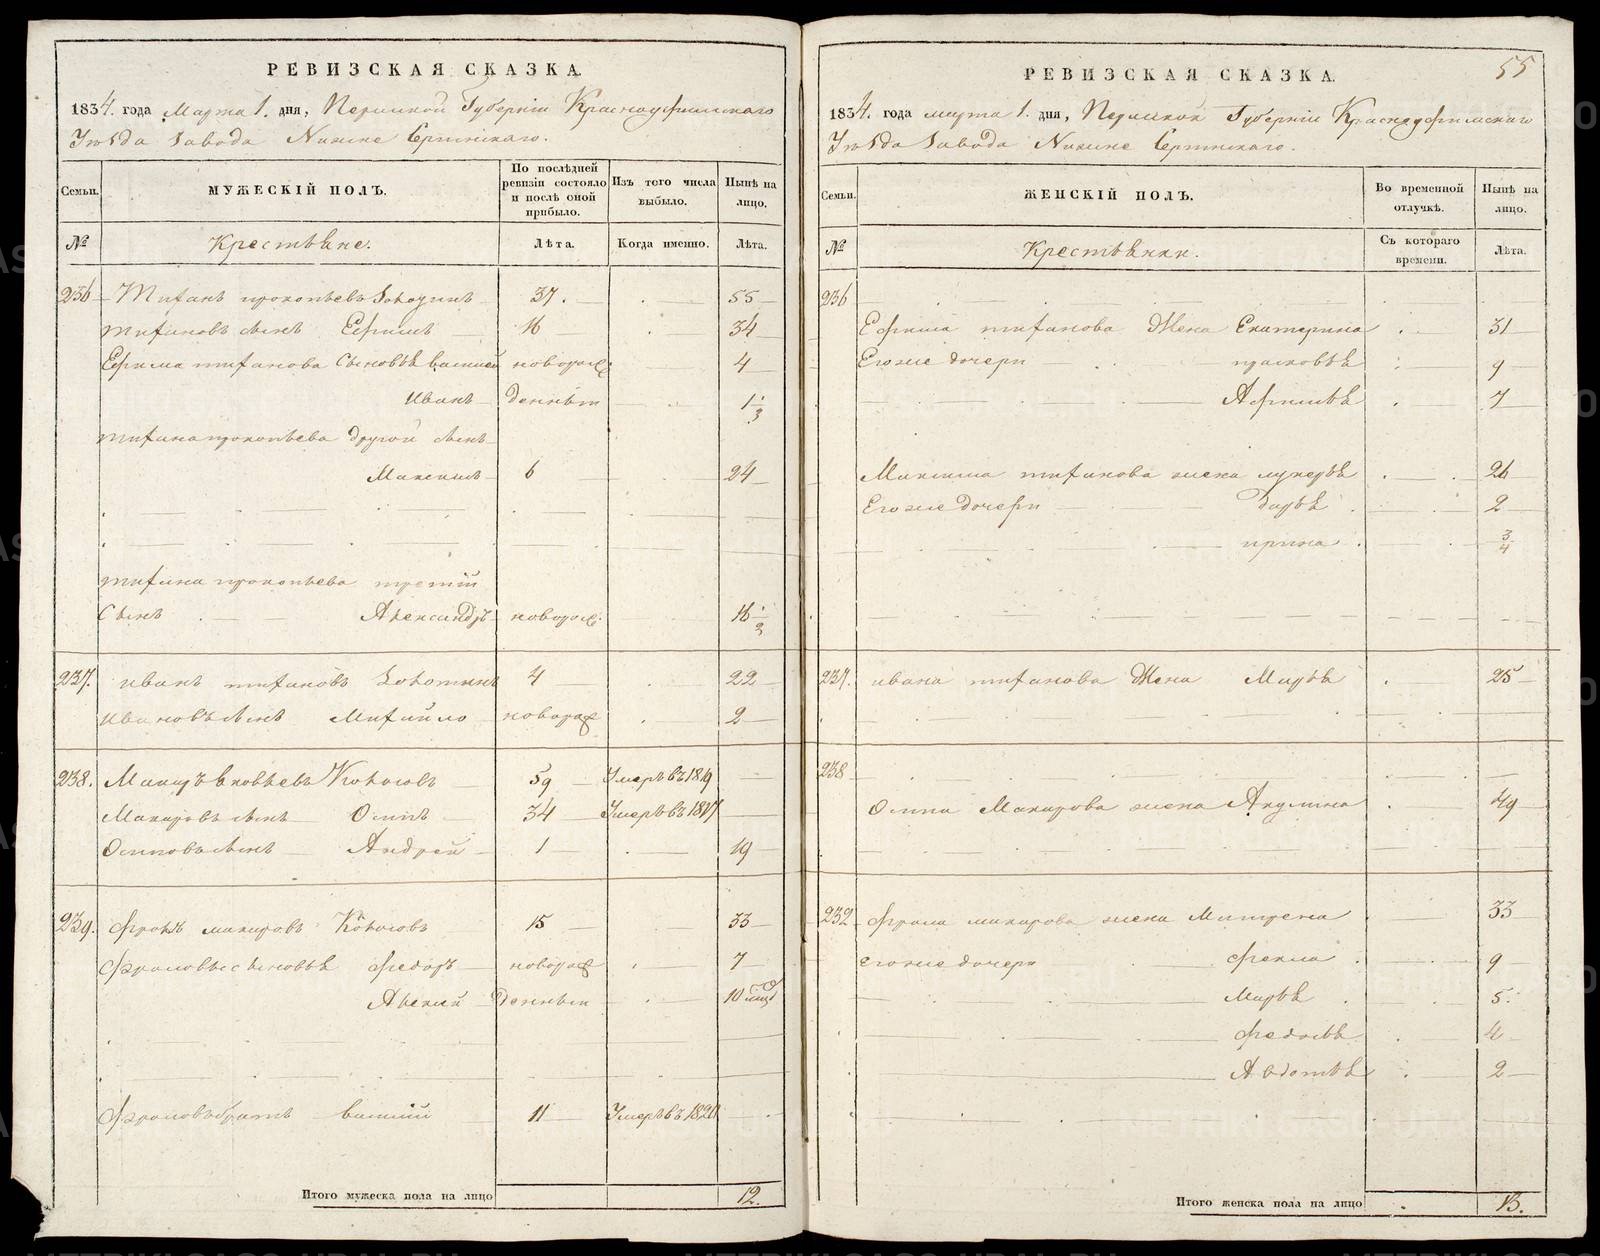 РЕВИЗСКАЯ СКАЗКА.
1834. года Марта 1. дня, Пермской Губерніи Красноуфимскаго
Уѣзда Завода Нижне Сергинскаго.
Семьи.
МУЖЕСКІЙ ПОЛЪ.
По послѣдней ревизіи состояло и послѣ оной прибыло.
Изъ того числа выбыло.
Нынѣ на лицо.
№
Крестьяне.
Лѣта.
Когда именно.
Лѣта.
236 Тифанъ прокопьевъ 37. 55
тифановъ сынъ Ефимъ 16 34
Ефима тифанова сыновья василей новорож 4
Иванъ деннъи 1 1/3
тифана прокопьева другой сынъ
Максимъ 6 24
тифана прокопьева третій
Сынъ Александръ новорож. 16 1/2
237. иванъ тифановъ 4 22
ивановъ сынъ Михайло новорож 2
238. Макаръ яковлевъ 59 Умеръ въ 1819
Макаровъ сынъ Осипъ 34 Умеръ въ 1817
Осиповъ сынъ Андрей 1 19
239. фролъ макаровъ 15 33
фроловы сыновья федоръ новорож 7
Алексей деннъи 10 мцов
фроловъ братъ василій 11 Умеръ въ 1820
Итого мужеска пола на лицо 12.
55
РЕВИЗСКАЯ СКАЗКА.
1834. года марта 1. дня, Пермской Губерніи Красноуфимскаго
Уѣзда Завода Нижне Сергинскаго.
Семьи.
ЖЕНСКІЙ ПОЛЪ.
Во временной отлучкѣ.
Нынѣ на лицо.
№
Крестьянки.
Съ котораго времени.
Лѣта.
236
Ефима тифанова Жена Екатерина 31
Егоже дочери прасковья 9
Афимья 7
Максима тифанова жена лукерья 26
Егоже дочери дарья 2
ирина 3/4
237. ивана тифанова Жена Марья 25
238
Осипа Макарова жена Акулина 49
239 фрола макарова жена Матрена 33
егоже дочери фекла 9
Марья 5.
федосья 4
Авдотья 2
Итого женска пола на лицо 13.